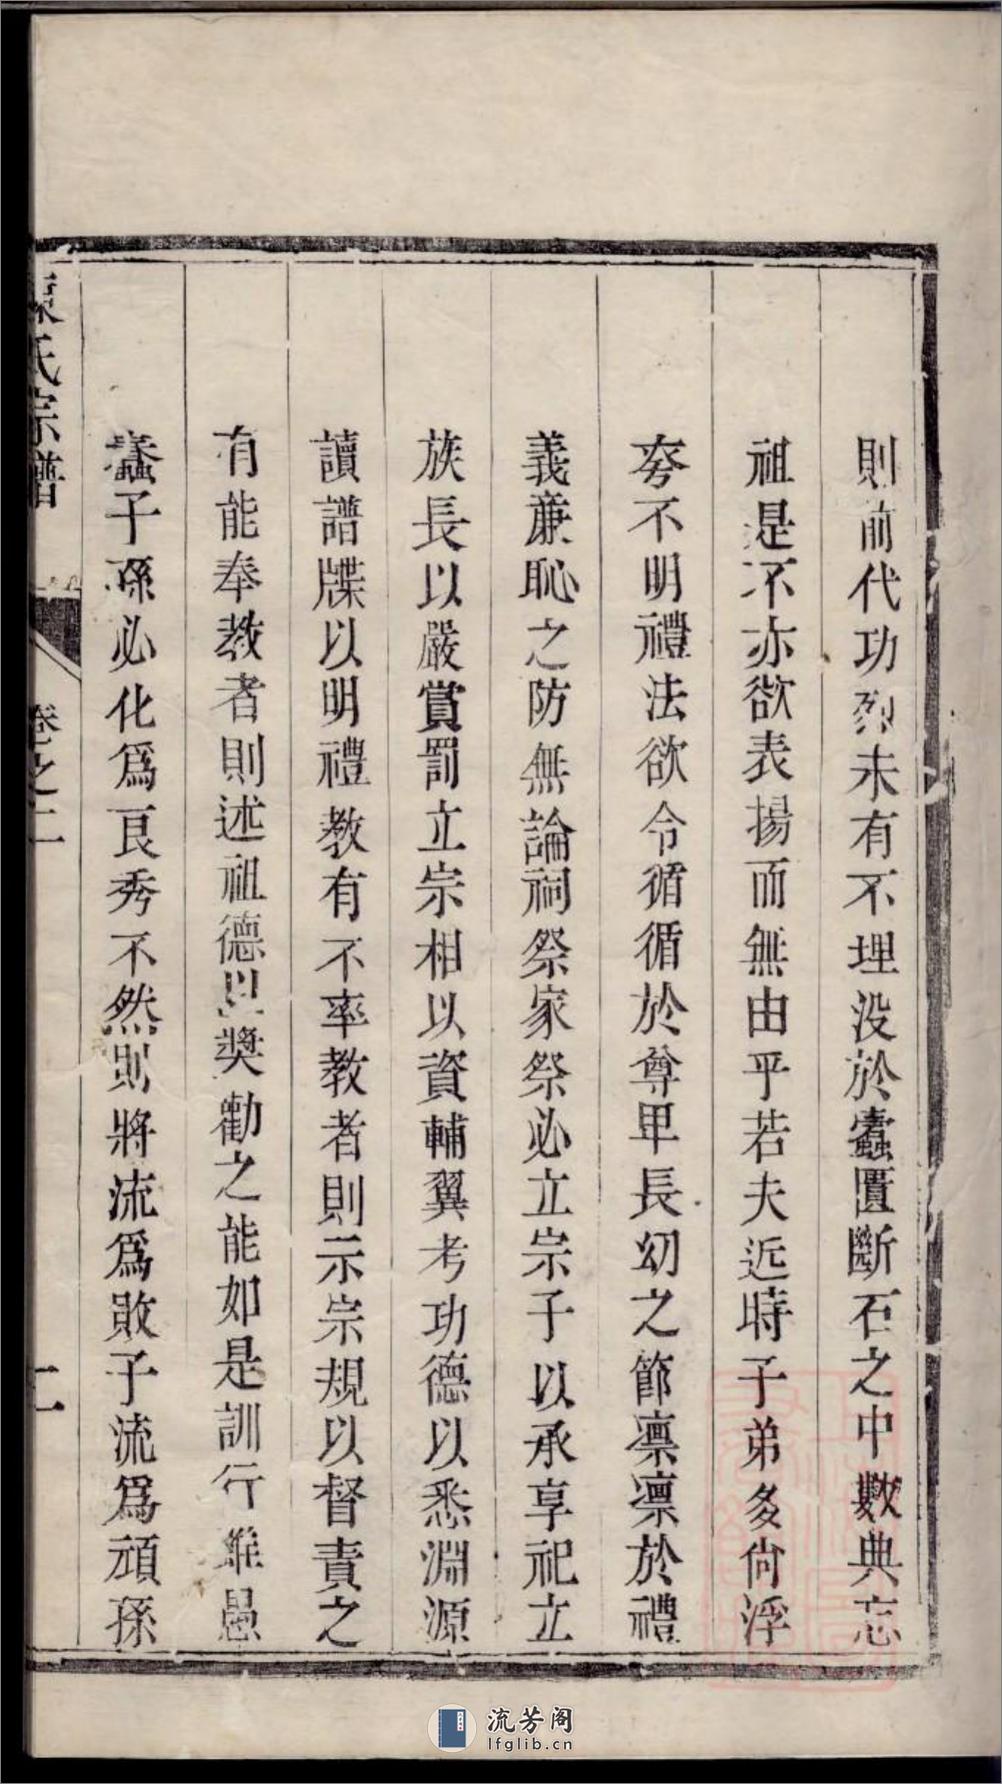 則前代功烈未有不埋没於蠹匱斷石之中數典忘
祖是不亦欲表揚而無由乎若夫近時子弟多尚浮
夸不明禮法欲令循循於尊卑長幼之節凛凛於禮
義廉恥之防無論祠祭家祭必立宗子以承享祀立
族長以嚴賞罰立宗相以資輔翼考功德以悉淵源
讀譜牒以明禮教有不率教者則示宗規以督責之
有能奉教者則述祖德以獎勸之能如是訓行雖愚
蠢子孫必化爲良秀不然則將流爲敗子流爲頑孫
氏宗譜
卷之二
二
流芳阁
lfglib.cn